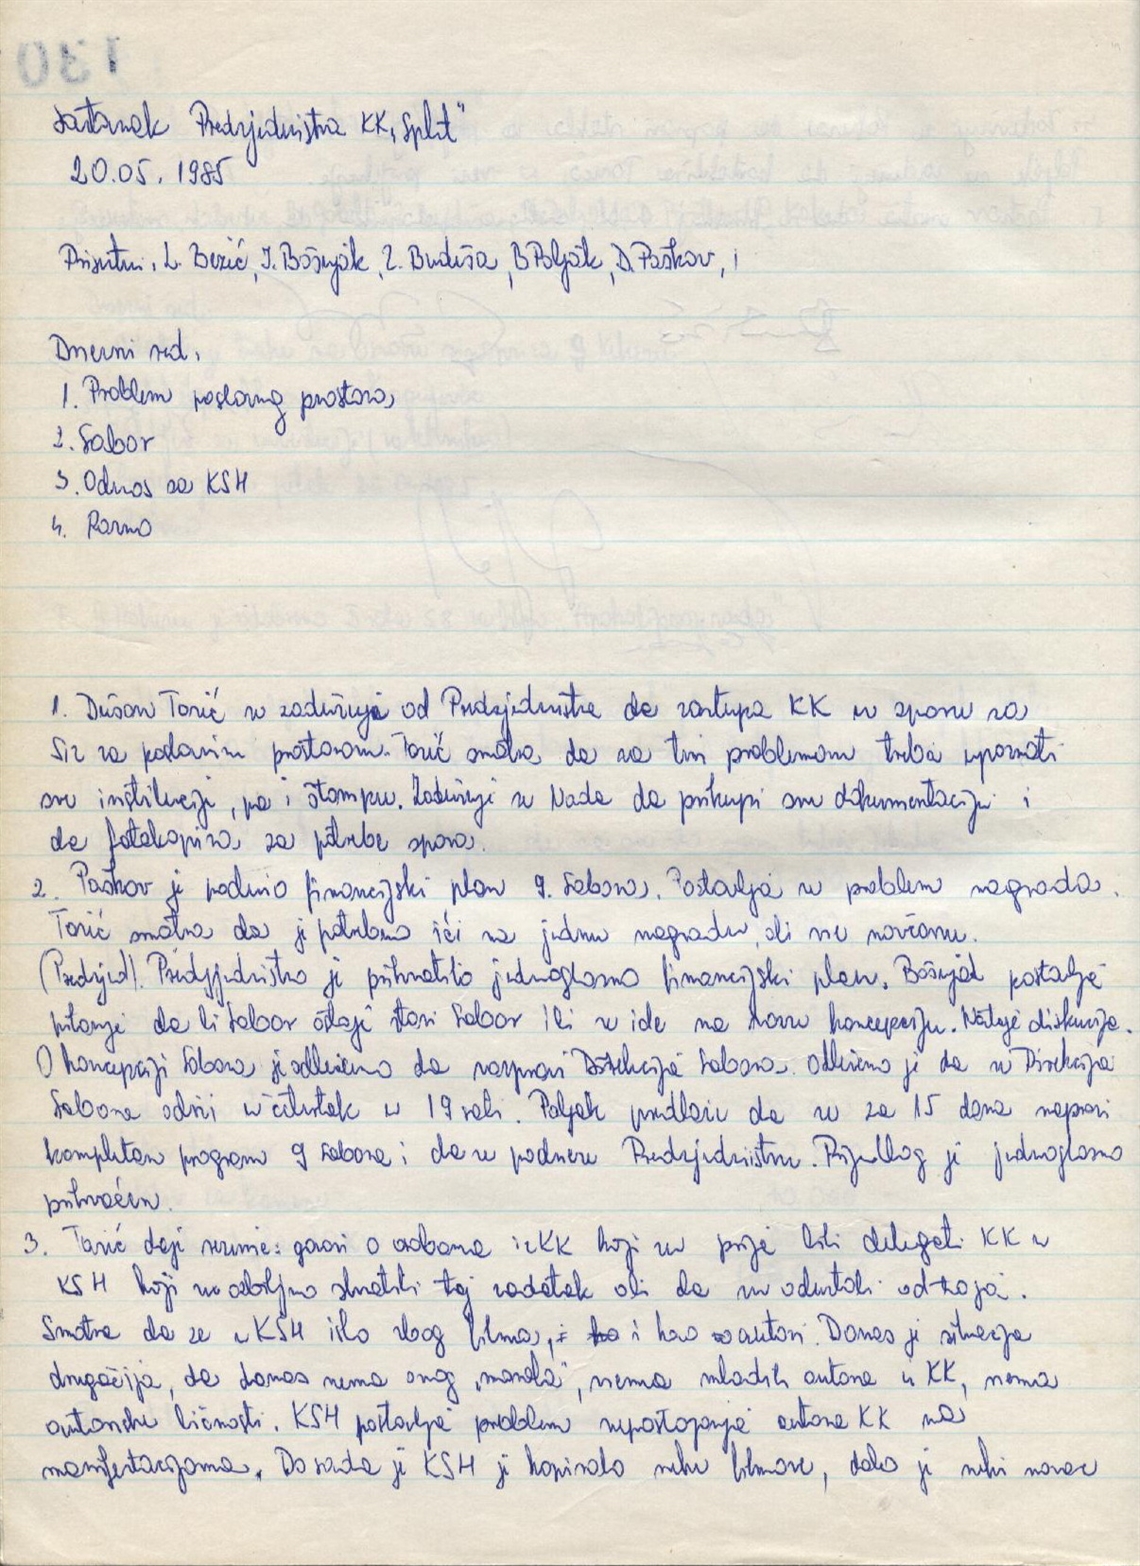 Sastanak Predsjedništva KK „Split"
20.05.1985
Prisutni: L. Bezić, I. Bošnjak, Z. Buduša, B Poljak, D. Paškov, i
Dnevni red:
1. Problem poslovnog prostora
2. Sabor
3. Odnos sa KSH
4. Razno
1. Dušan Tasić se zadužuje od Predsjedništva da zastupa KK u sporu sa
Siz za poslovnim prostorom. Tasić smatra da sa tim problemom treba upoznati
sve institucije, pa i štampu. Zadužuje se Nada da prikupi svu dokumentaciju i
da fotokopira za potrebe spora.
2. Paškov je podnio financijski plan 9. Sabora. Postavlja se problem nagrada.
Tasić smatra da je potrebno ići na jednu nagradu, ali sve novčane.
(Predsjed). Predsjedništvo je prihvatilo jednoglasno financijski plan. Bošnjak postavlja
pitanje da li Sabor ostaje stari Sabor ili se ide na novu koncepciju. Nastaje diskusija.
O koncepciji Sabora je odlučeno da raspravi Direkcija Sabora. Odlučeno je da se Direkcija
Sabora održi u četvrtak u 19 sati. Poljak predlaže da se za 15 dana napravi
kompletan program 9 Sabora i da se podnese Predsjedništvu. Prijedlog je jednoglasno
prihvaćen.
3. Tasić daje rezime: govori o osobama iz KK koji su prije bili delegati KK u
KSH koji su ozbiljno shvatili taj zadatak ali da su odustali od toga.
Smatra da se u KSH išlo zbog filma, i kao autori. Danas je situacija
drugačija, da danas nema onog „morala", nema mladih autora u KK, nema
autorske ličnosti. KSH postavlja problem nepostojanja autora KK na
manifestacijama. Do sada je KSH je kopirao neke filmove, dao je neki novac